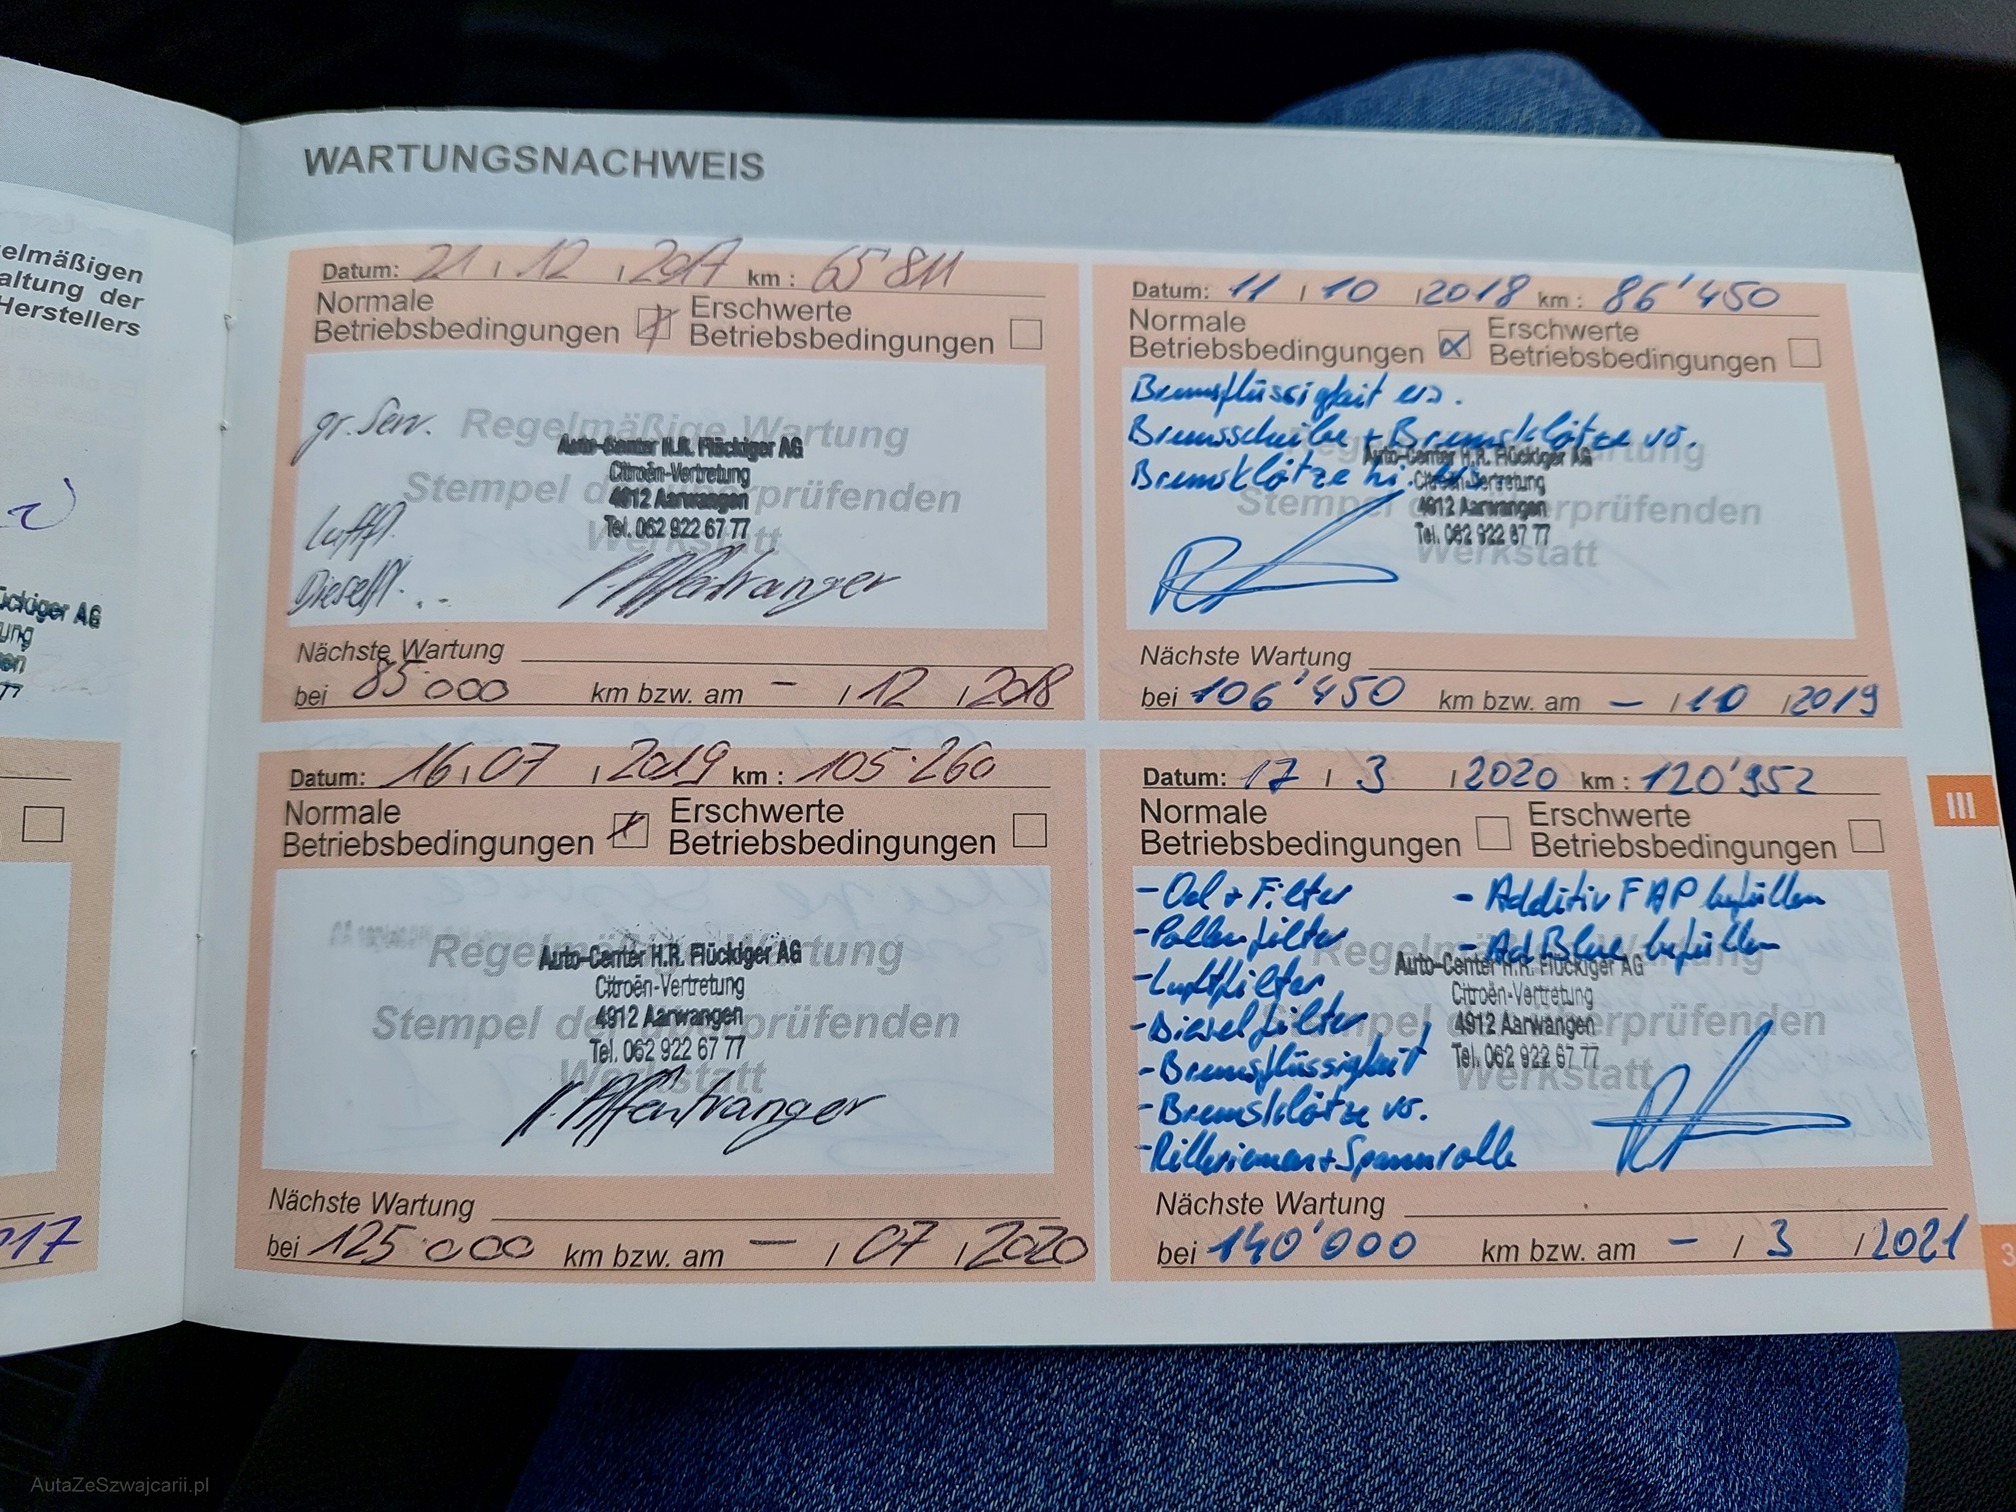 elmäßigen
altung der
Herstellers
ückiger AG
ung
en
77
017
WARTUNGSNACHWEIS
Datum: 21 / 12 / 2017 km : 65'811
Normale Betriebsbedingungen Erschwerte Betriebsbedingungen
gr. Serv.
Regelmäßige Wartung
Auto-Center H.R. Flückiger AG
Citroën-Vertretung
Stempel der überprüfenden
4912 Aarwangen
Luftfl.
Tel. 062 922 67 77
Werkstatt
Dieselfl. ..
Nächste Wartung
bei 85'000 km bzw. am – / 12 / 2018
Datum: 11 / 10 / 2018 km : 86'450
Normale Betriebsbedingungen Erschwerte Betriebsbedingungen
Bremsflüssigkeit ers.
Bremsscheibe + Bremsklötze vo.
Auto-Center H.R. Flückiger AG
Bremsklötze hi.
Citroën-Vertretung
4912 Aarwangen
Tel. 062 922 67 77
Werkstatt
Nächste Wartung
bei 106'450 km bzw. am – / 10 / 2019
Datum: 16 / 07 / 2019 km : 105'260
Normale Betriebsbedingungen Erschwerte Betriebsbedingungen
Regelmäßige Wartung
Auto-Center H.R. Flückiger AG
Citroën-Vertretung
Stempel der überprüfenden
4912 Aarwangen
Tel. 062 922 67 77
Werkstatt
Nächste Wartung
bei 125'000 km bzw. am – / 07 / 2020
Datum: 17 / 3 / 2020 km : 120'952
Normale Betriebsbedingungen Erschwerte Betriebsbedingungen
- Oel + Filter
- Pollenfilter
- Luftfilter
- Dieselfilter
- Bremsflüssigkeit
- Bremsklötze vo.
- Rillenriemen + Spannrolle
- Additiv FAP befüllen
- AdBlue befüllen
Auto-Center H.R. Flückiger AG
Citroën-Vertretung
4912 Aarwangen
Tel. 062 922 67 77
Werkstatt
Nächste Wartung
bei 140'000 km bzw. am – / 3 / 2021
III
3
AutaZeSzwajcarii.pl